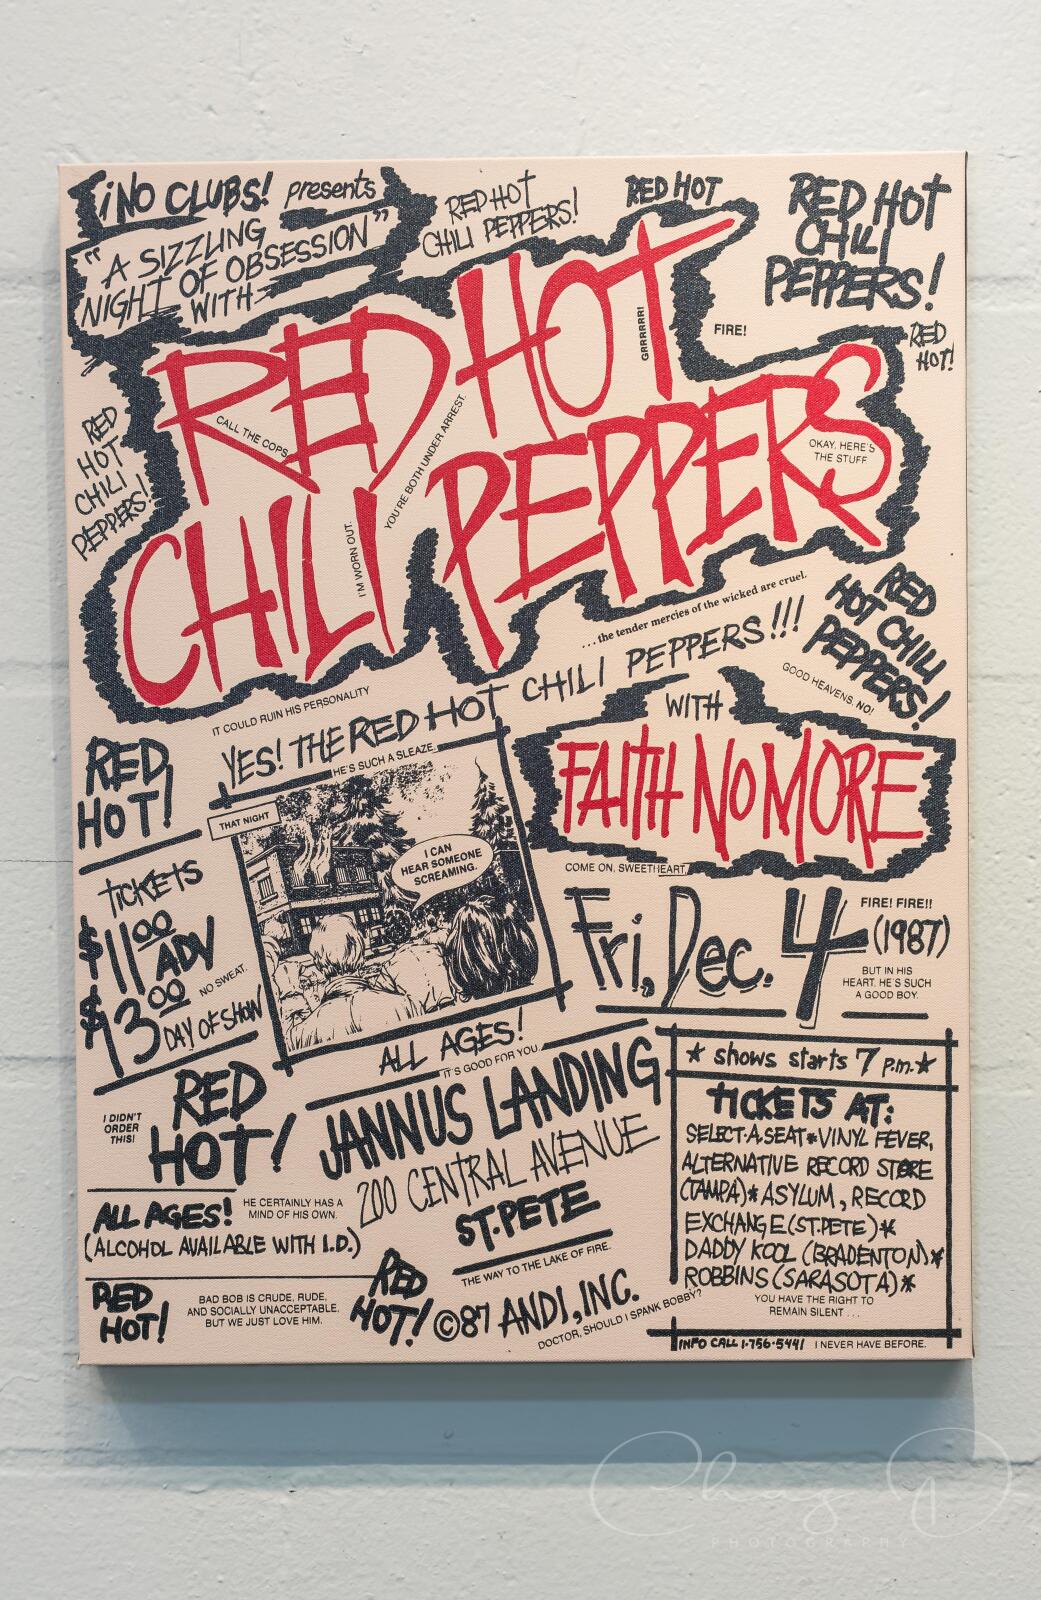 ¡NO CLUBS! presents
"A SIZZLING
NIGHT OF OBSESSION"
WITH
RED HOT
CHILI PEPPERS!
RED HOT
RED HOT
CHILI
PEPPERS!
RED
HOT!
FIRE!
GRRRRRR!
RED HOT
CHILI PEPPERS
CALL THE COPS.
YOU'RE BOTH UNDER ARREST.
I'M WORN OUT.
OKAY. HERE'S
THE STUFF.
RED
HOT
CHILI
PEPPERS!
...the tender mercies of the wicked are cruel.
RED
HOT CHILI
PEPPERS!
GOOD HEAVENS, NO!
IT COULD RUIN HIS PERSONALITY
YES! THE RED HOT CHILI PEPPERS!!!
HE'S SUCH A SLEAZE.
WITH
FAITH NO MORE
COME ON, SWEETHEART.
RED
HOT!
THAT NIGHT
I CAN
HEAR SOMEONE
SCREAMING.
TICKETS
$11.00 ADV
$13.00
DAY OF SHOW
NO SWEAT.
Fri, Dec. 4
FIRE! FIRE!!
(1987)
BUT IN HIS
HEART. HE'S SUCH
A GOOD BOY.
ALL AGES!
IT'S GOOD FOR YOU.
JANNUS LANDING
200 CENTRAL AVENUE
ST. PETE
THE WAY TO THE LAKE OF FIRE.
I DIDN'T
ORDER
THIS!
RED
HOT!
ALL AGES!
HE CERTAINLY HAS A
MIND OF HIS OWN.
(ALCOHOL AVAILABLE WITH I.D.)
RED
HOT!
BAD BOB IS CRUDE, RUDE,
AND SOCIALLY UNACCEPTABLE.
BUT WE JUST LOVE HIM.
RED
HOT!
©87 ANDI, INC.
DOCTOR, SHOULD I SPANK BOBBY?
* shows starts 7 p.m. *
TICKETS AT:
SELECT-A-SEAT * VINYL FEVER,
ALTERNATIVE RECORD STORE
(TAMPA) * ASYLUM, RECORD
EXCHANGE (ST. PETE) *
DADDY KOOL (BRADENTON) *
ROBBINS (SARASOTA) *
YOU HAVE THE RIGHT TO
REMAIN SILENT...
INFO CALL 1-756-5441
I NEVER HAVE BEFORE.
Chaz D
PHOTOGRAPHY